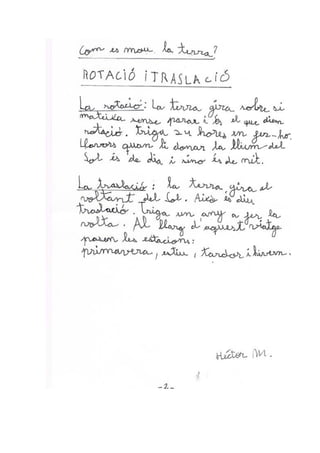 Com es mou la terra?
ROTACIÓ I TRASLACIÓ
La rotació: La terra gira sobre si
mateixa sense parar i és el que diem
rotació. Triga 24 hores en fer-ho.
Llavors quan li donar la llum del
Sol és de dia i sino és de nit.
La traslació: La terra gira al
voltant del Sol. Això és diu
traslació. Triga un any a fer la
volta. Al llarg d'aquest viatge
pasem les estacions:
primavera, estiu, tardor i hivern.
Héctor M.
-2-